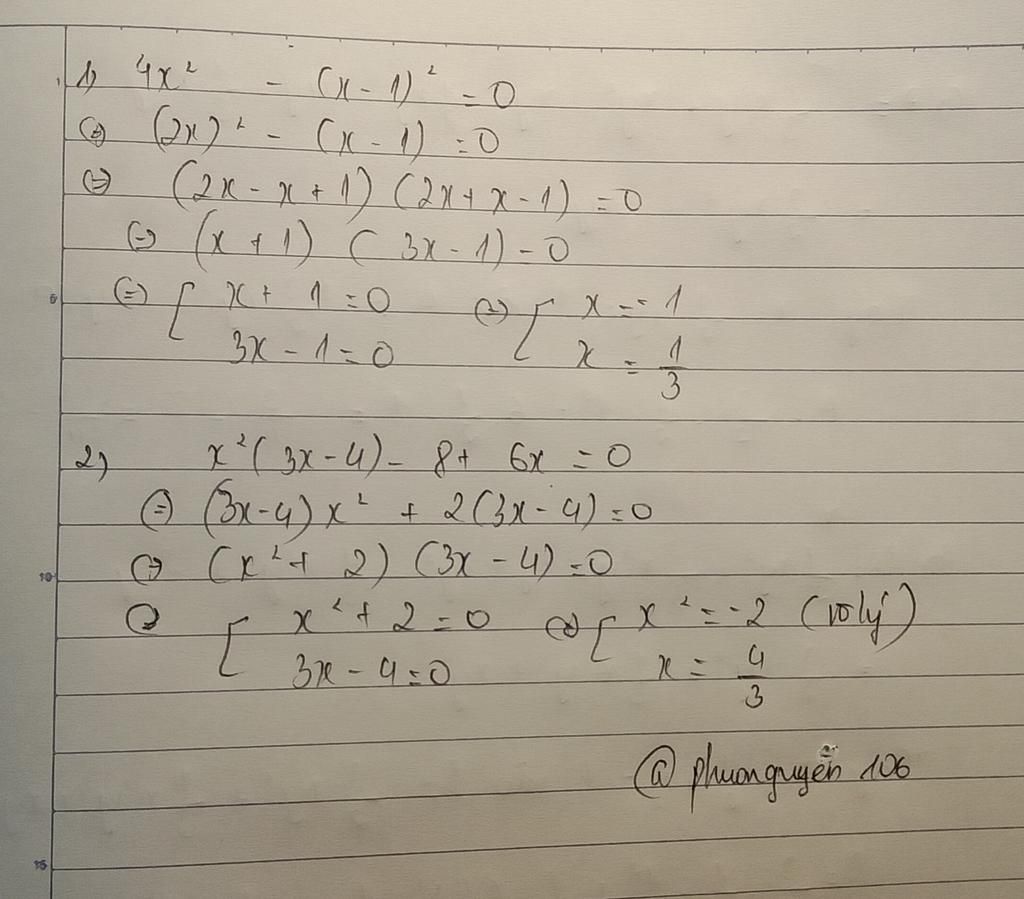 1) 4x² - (x - 1)² = 0
⇔ (2x)² - (x - 1) = 0
⇔ (2x - x + 1) (2x + x - 1) = 0
⇔ (x + 1) ( 3x - 1) = 0
⇔ [ x + 1 = 0 ⇔ [ x = -1
3x - 1 = 0 x = 1/3
2) x² ( 3x - 4) - 8 + 6x = 0
⇔ (3x - 4) x² + 2 (3x - 4) = 0
⇔ (x² + 2) (3x - 4) = 0
⇔ [ x² + 2 = 0 ⇔ [ x² = -2 (vô lý)
3x - 4 = 0 x = 4/3
@phuonguyễn 106
5
10
15